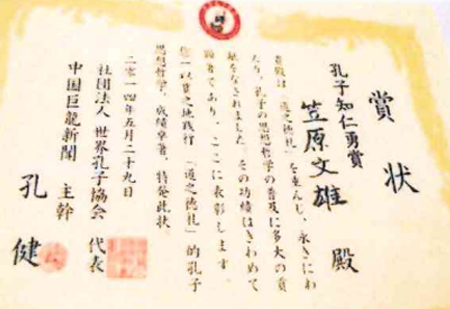 賞状
孔子知仁勇賞
笠原文雄 殿
貴殿は「道之徳礼」を重んじ、永きにわ
たり、孔子の思想哲学の普及に多大の貢
献をなされました。その功績はきわめて
顕著であり、ここに表彰します。
您一以貫之地践行「道之徳礼」的孔子
思想哲学、成績卓著、特発此状。
二零一四年五月二十九日
社団法人 世界孔子協会 代表
中国巨龍新聞 主幹
孔健